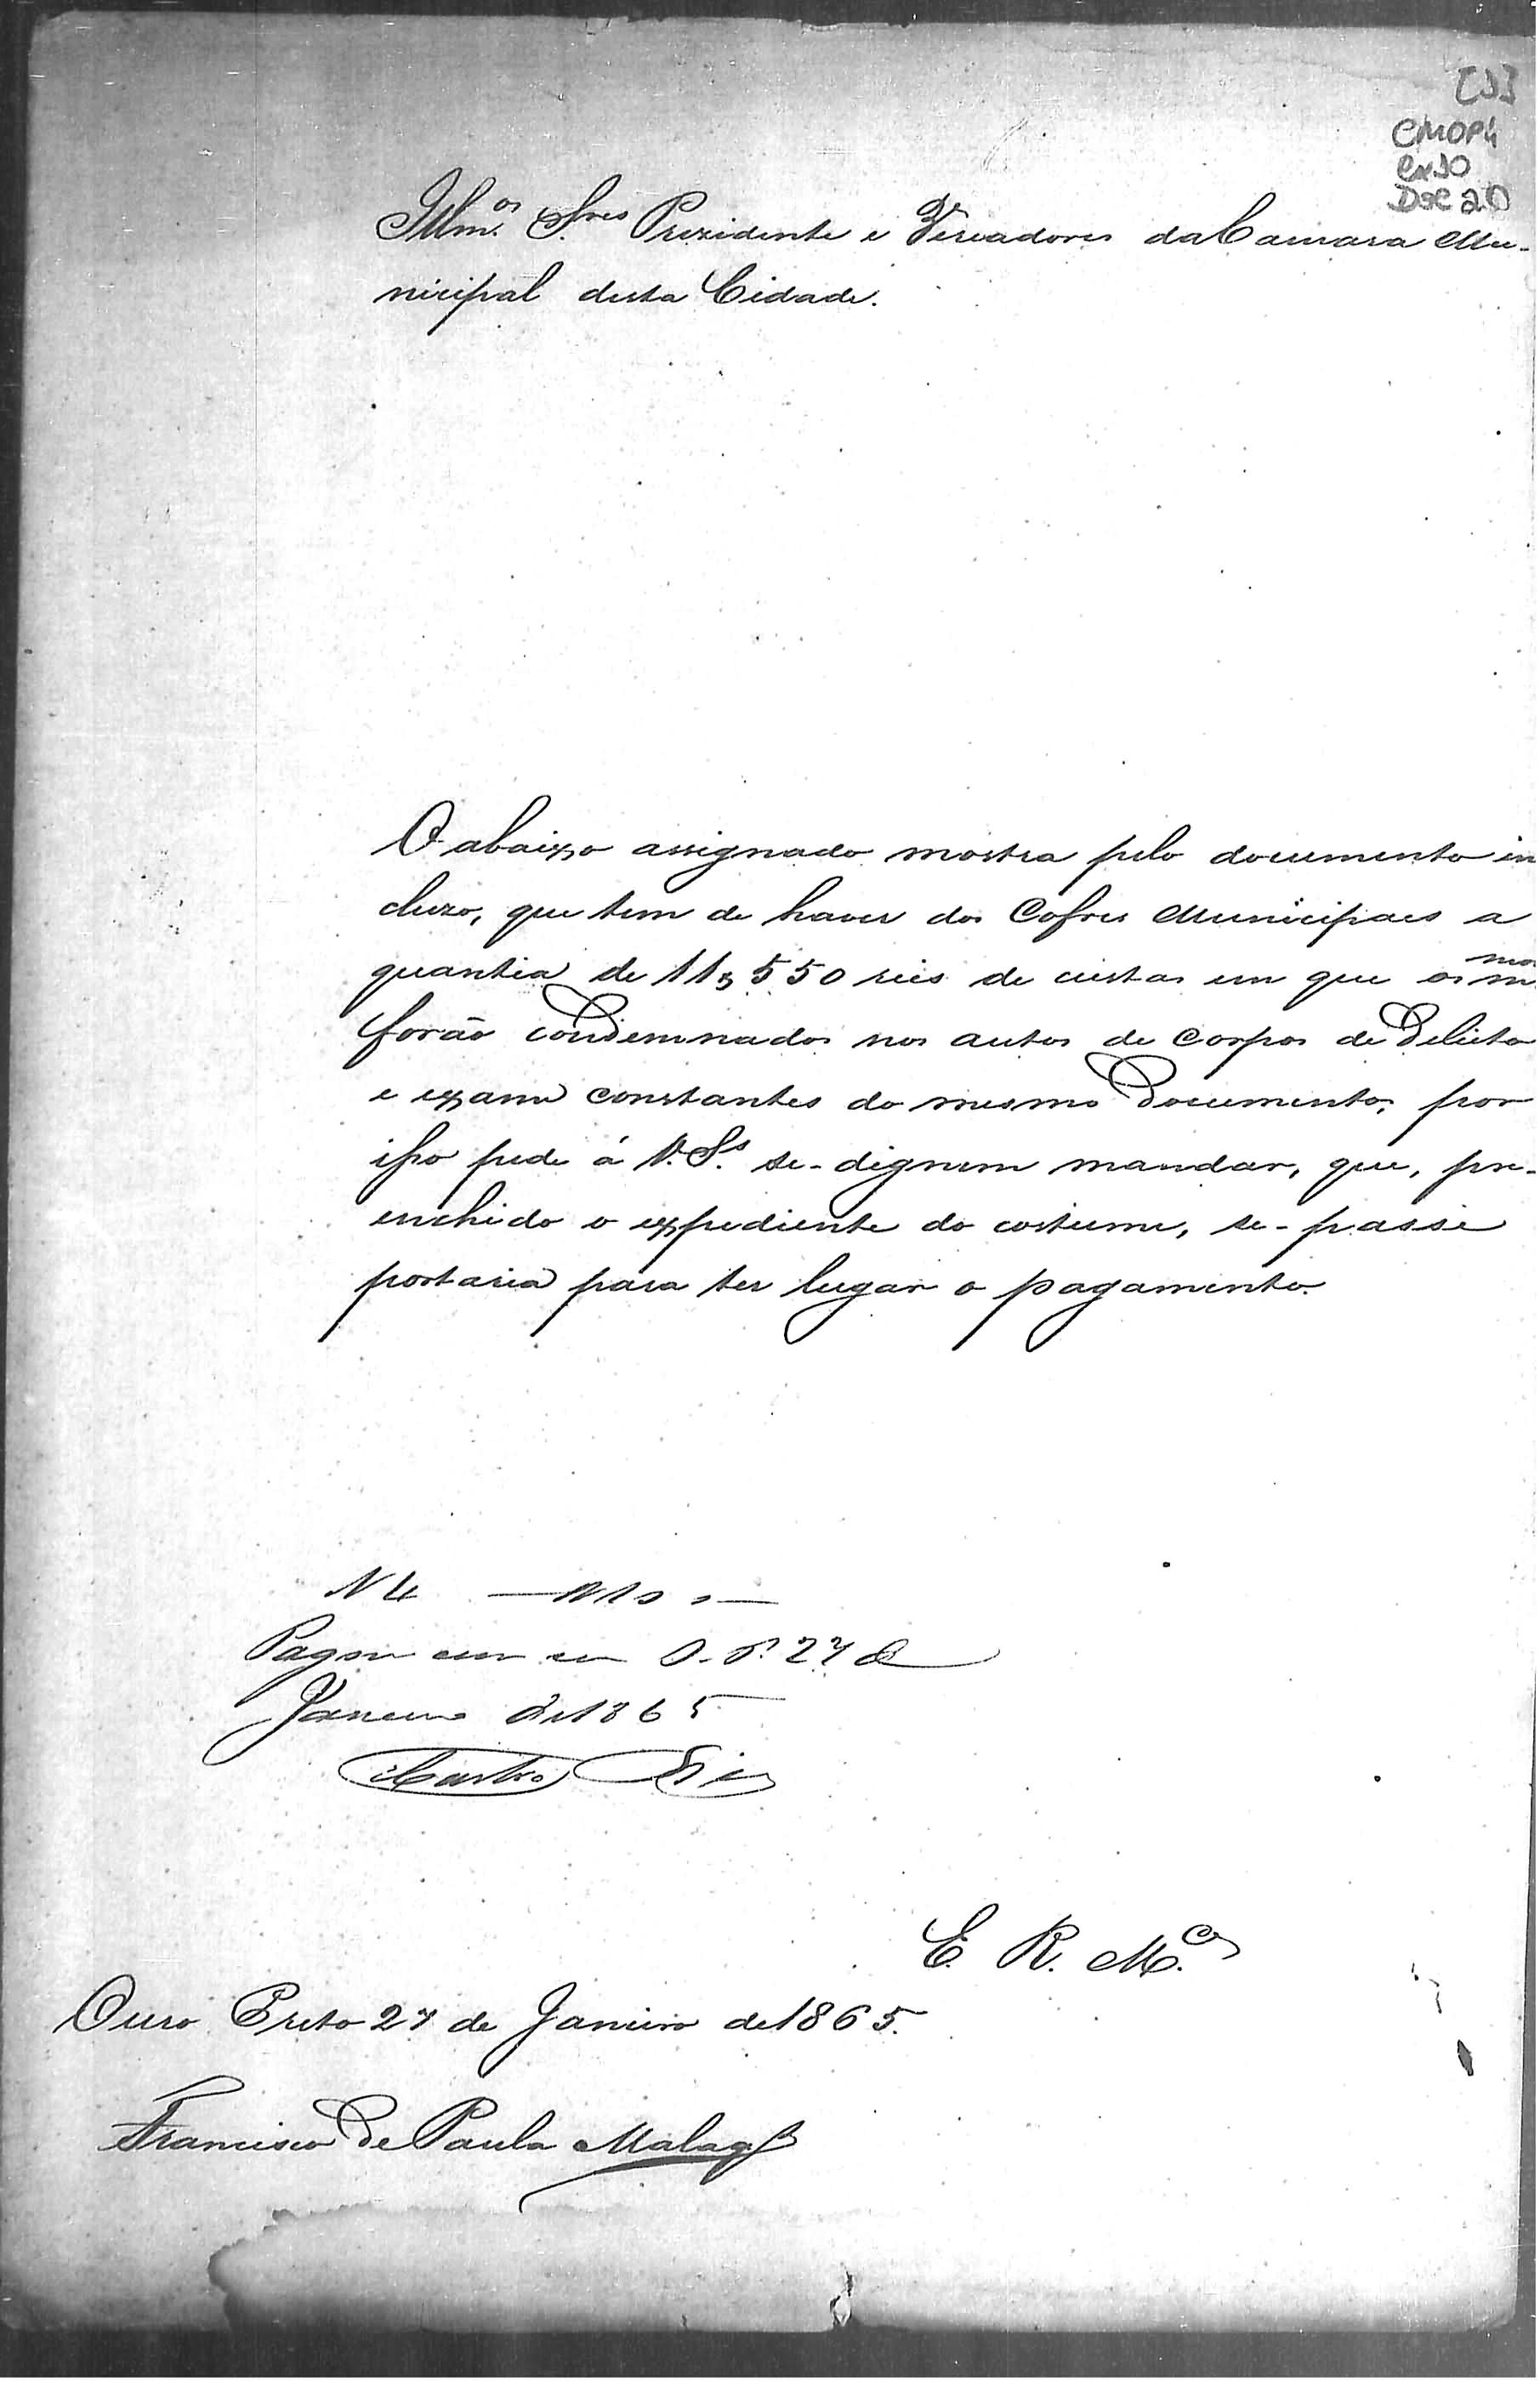 [1]
CMOP4
Cx10
Doc 20
Illm.os S.res Prezidente e Vereadores da Camara Mu-
nicipal desta Cidade.
O abaixo assignado mostra pelo documento in
cluzo, que tem de haver dos Cofres Municipaes a
quantia de 11$550 reis de custas em que os mmos
forão condemnados nos autos de Corpos de Delicto
e exame constantes do mesmo Documento, por
isso pede á V. S.s se-dignem mandar, que, pre-
enchido o expediente do costume, se-passe
portaria para ter lugar o pagamento.
N 4
Pagou 27 de
Janeiro de 1865
Castro
E. R. M.ce
Ouro Preto 27 de Janeiro de 1865.
Francisco de Paula